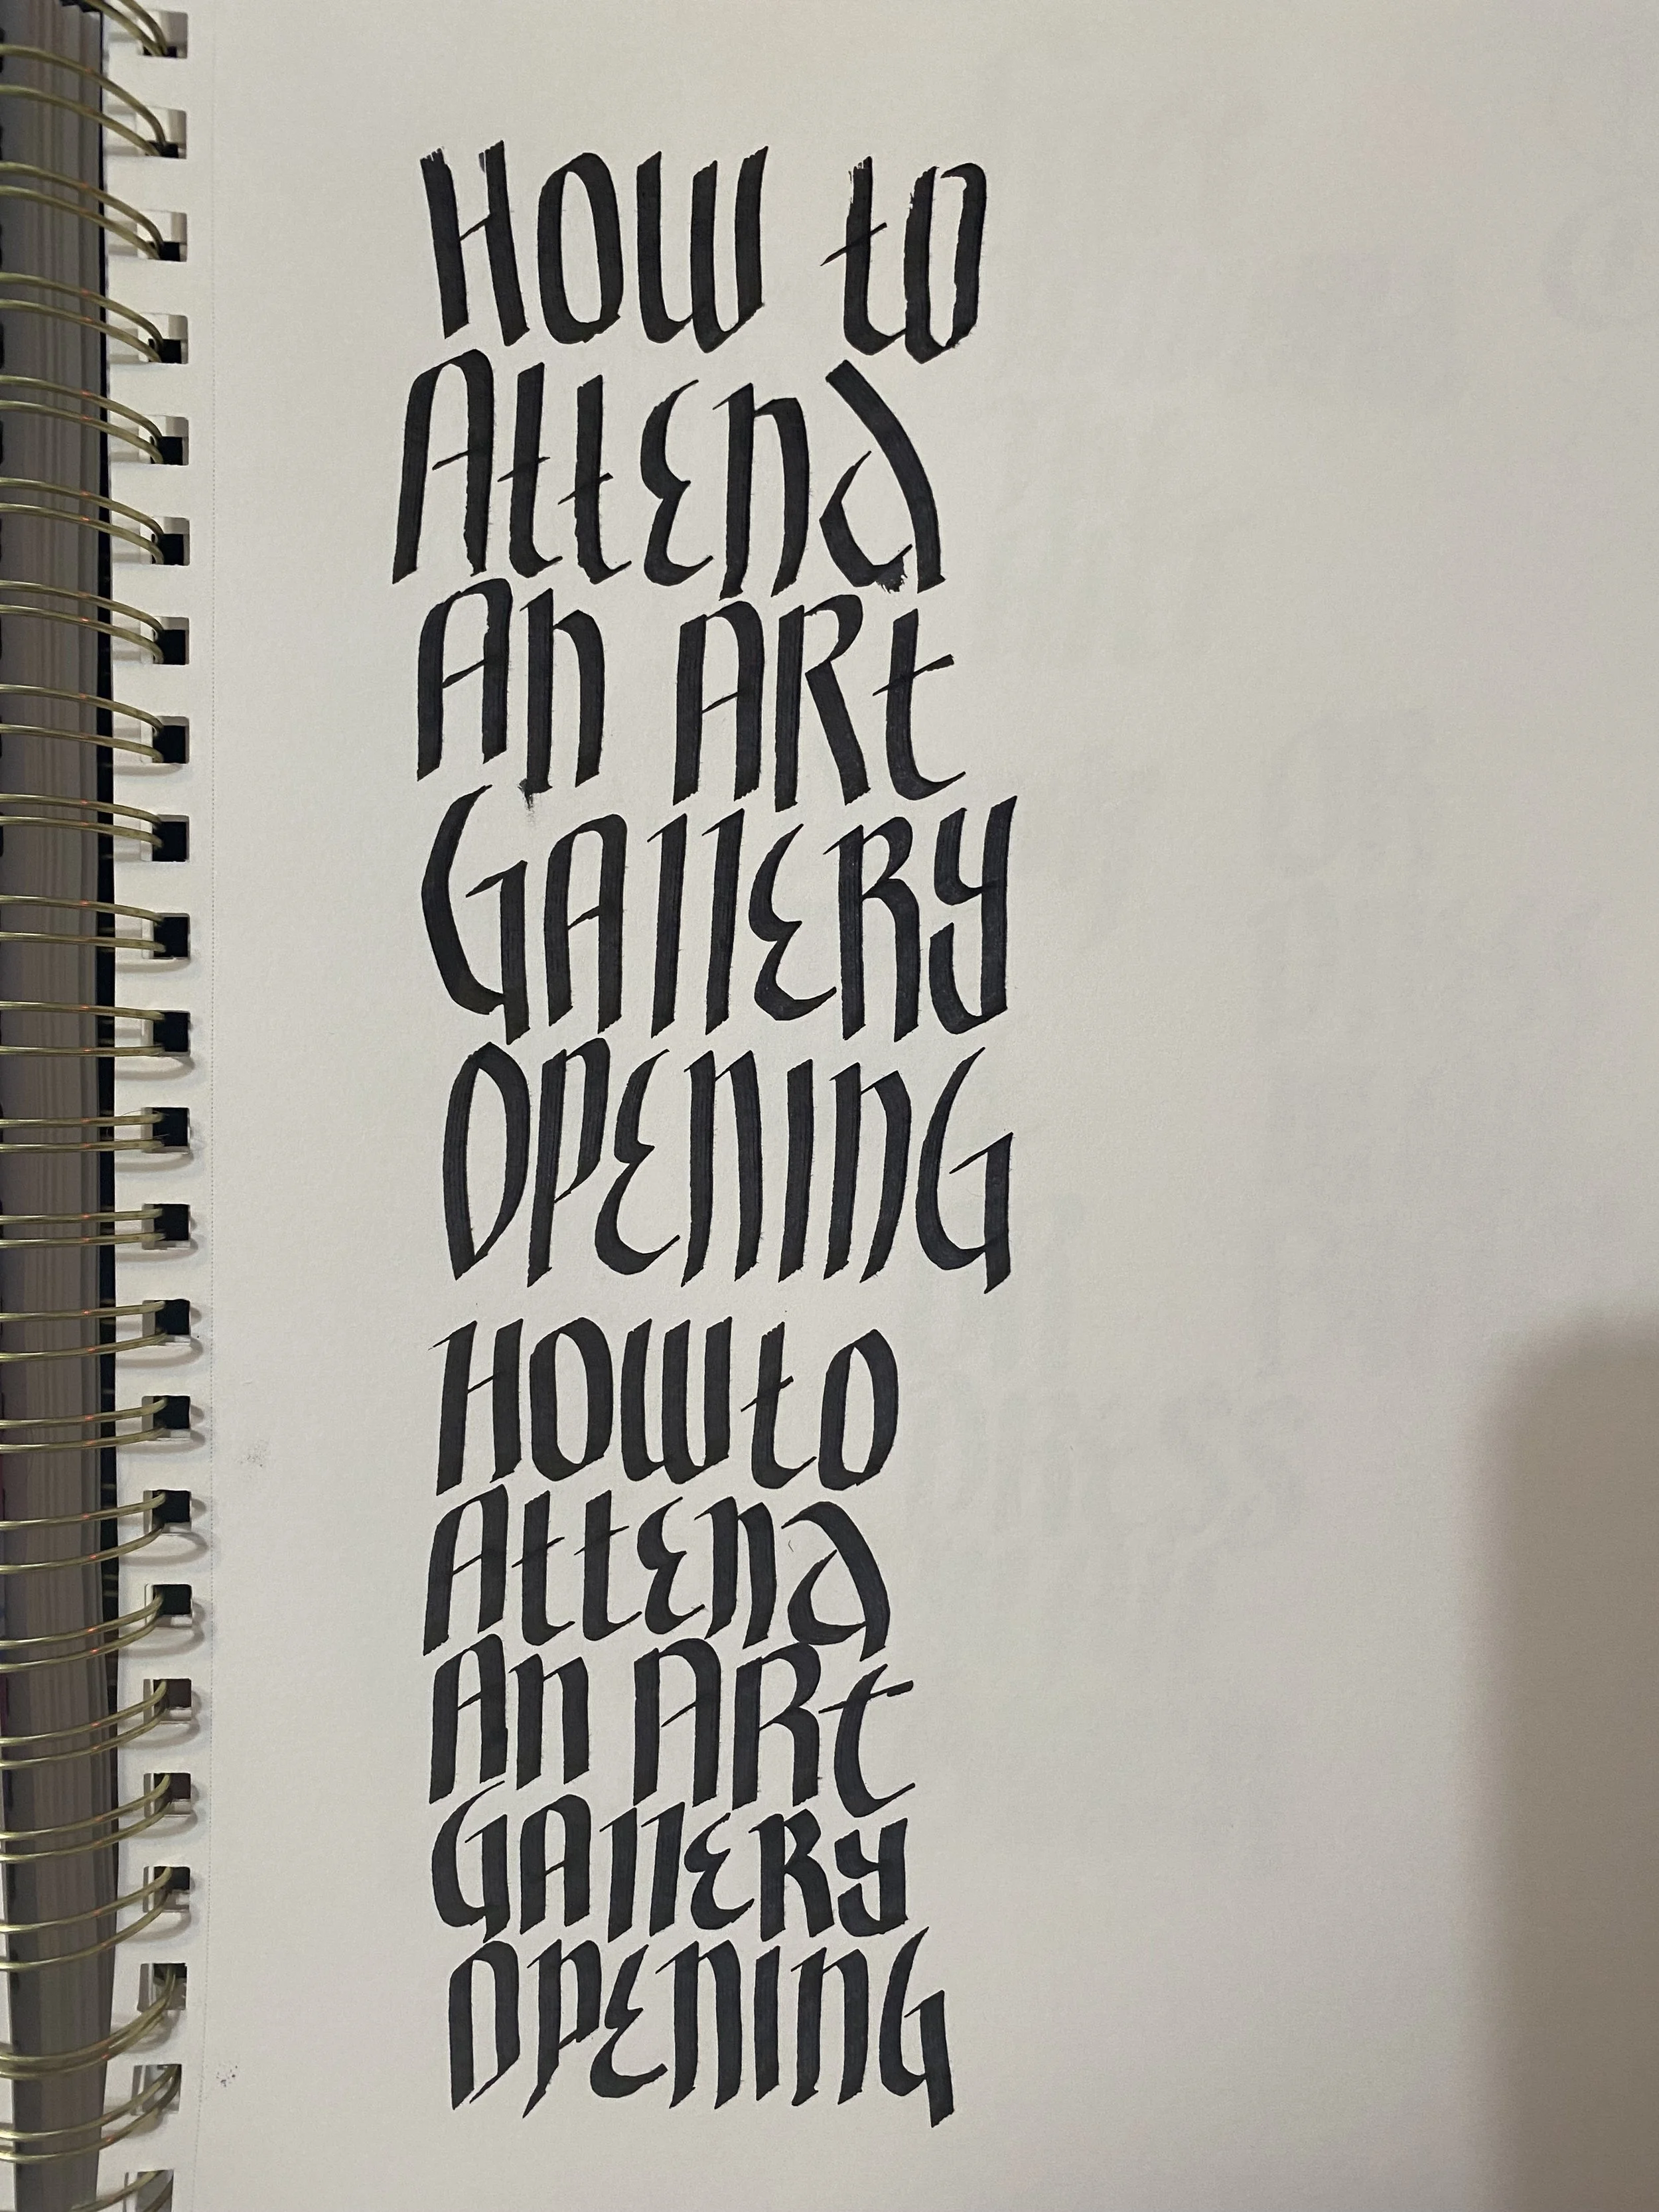 How to
Attend
An ARt
GAllERy
OPENING
How to
Attend
An ARt
GAllERy
OPENING